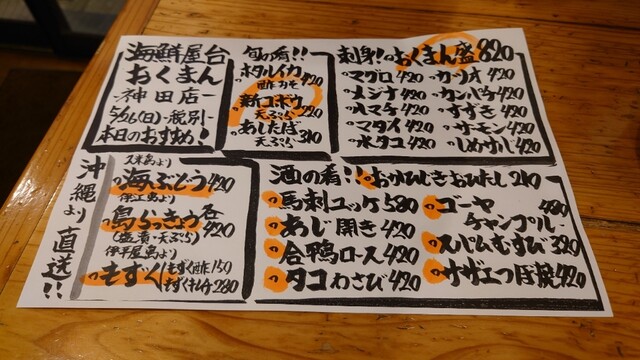 海鮮屋台
おくまん
-神田店-
5/26(日)-税別-
本日のおすすめ!
旬の肴!!
ホタルイカ
酢みそ 420
新ゴボウ
天ぷら 220
あしたば
天ぷら 310
刺身!のおくまん盛 820
マグロ 420
カツオ 420
メジナ 420
カンパチ 420
ハマチ 420
すずき 420
マダイ 420
サーモン 420
水タコ 420
しめサバ 420
沖縄より直送!!
久米島より
海ぶどう 420
伊江島より
島らっきょう 各420
(塩漬・天ぷら)
伊平屋島より
もずく(もずく酢 150
もずくキムチ 280
酒の肴!!
おかひじきおひたし 210
馬刺ユッケ 580
あじ開き 420
合鴨ロース 420
タコわさび 420
ゴーヤ
チャンプルー
スパムむすび 320
サザエつぼ焼 420